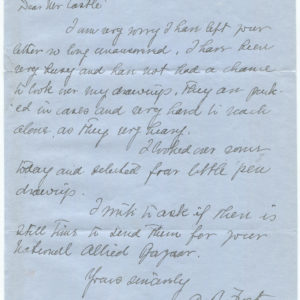 Dear Mr Castle
I am very sorry I have left your
letter so long unanswered. I have been
very busy and have not had a chance
to look over my drawings. They are pack-
ed in cases and very hard to reach
alone, as they very heavy.
I looked over some
today and selected four little pen
drawings.
I write to ask if there is
still time to send them for your
National Allied Bazaar.
Yours sincerely